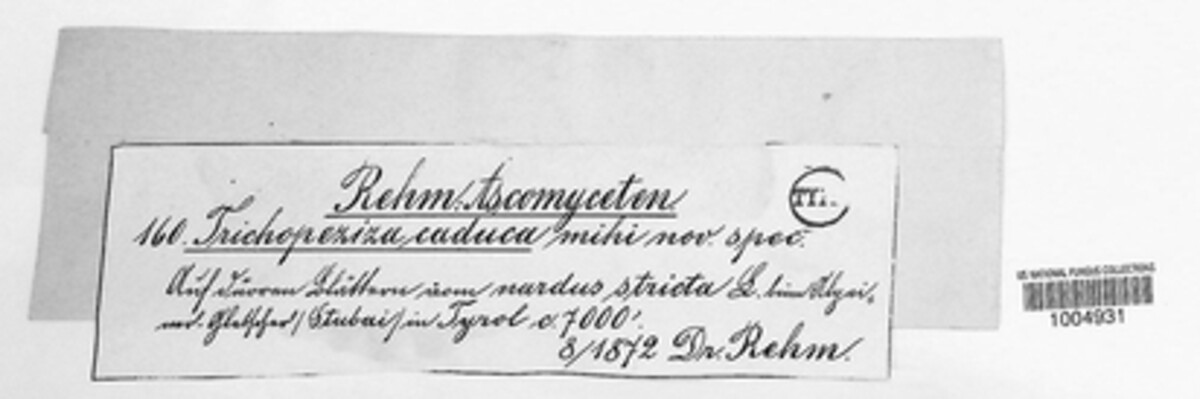 Rehm. Ascomyceten
160. Trichopeziza caduca mihi nov. spec.
Auf dürren Blättern vom nardus stricta L. beim Alpei-
ner Gletscher / Stubai / in Tyrol c. 7000'.
8/1872 Dr. Rehm.
US NATIONAL FUNGUS COLLECTIONS
1004931